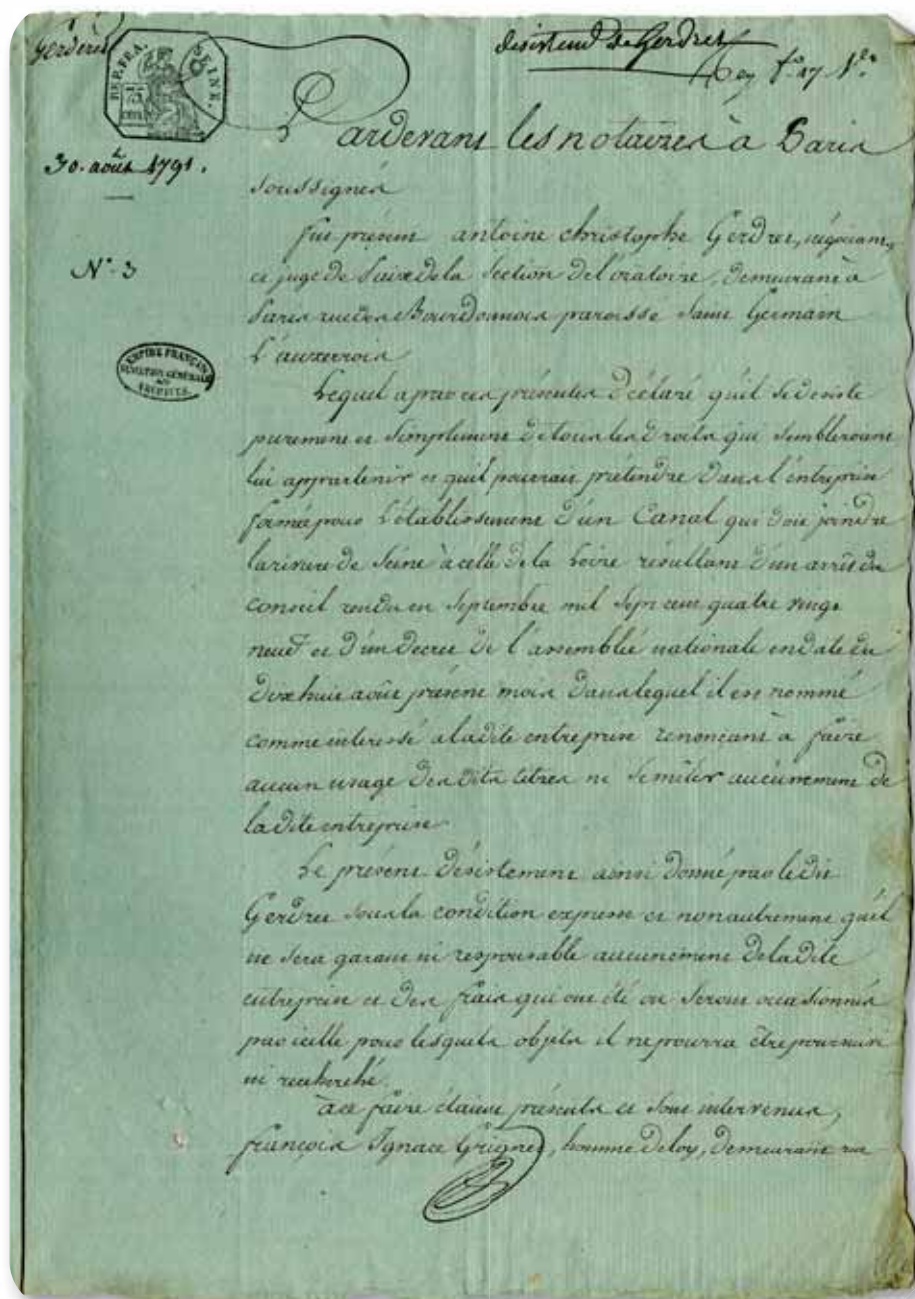 Gerdret
REP. FRA. SEINE.
desistem.t de Gerdret
30. août 1791.
N.° 3
EMPIRE FRANÇAIS
DIRECTION GÉNÉRALE
DES
ARCHIVES
Pardevant les notaires à Paris
soussignés
fut présent antoine christophe Gerdret, négociant,
et juge de Paix de la Section de l'oratoire, demeurant à
Paris rue des Bourdonnois paroisse Saint Germain
L'auxerrois
Lequel a par ces présentes déclaré qu'il se désiste
purement et simplement de tous les droits qui sembleroient
lui appartenir et quil pourrait prétendre dans l'entreprise
formée pour l'établissement d'un Canal qui doit joindre
la riviere de Seine à celle de la Loire résultant d'un arrêt du
conseil rendu en septembre mil sept cent quatre vingt
neuf et d'un decret de l'assemblée nationale en date du
dix huit août présent mois dans lequel il est nommé
comme interessé a ladite entreprise renonçant à faire
aucun usage desdits titres ni s'emiler aucunement de
ladite entreprise
Le présent désistement ainsi donné par ledit
Gerdret sous la condition expresse et non autrement qu'il
ne sera garant ni responsable aucunement de ladite
entreprise et des frais qui ont été ou seront occasionnés
par icelle pour lesquels objets il ne pourra être poursuivi
ni recherché.
à ce faire étaient présents et sont intervenus,
françois Ignace Grignet, homme de loy, demeurant rue